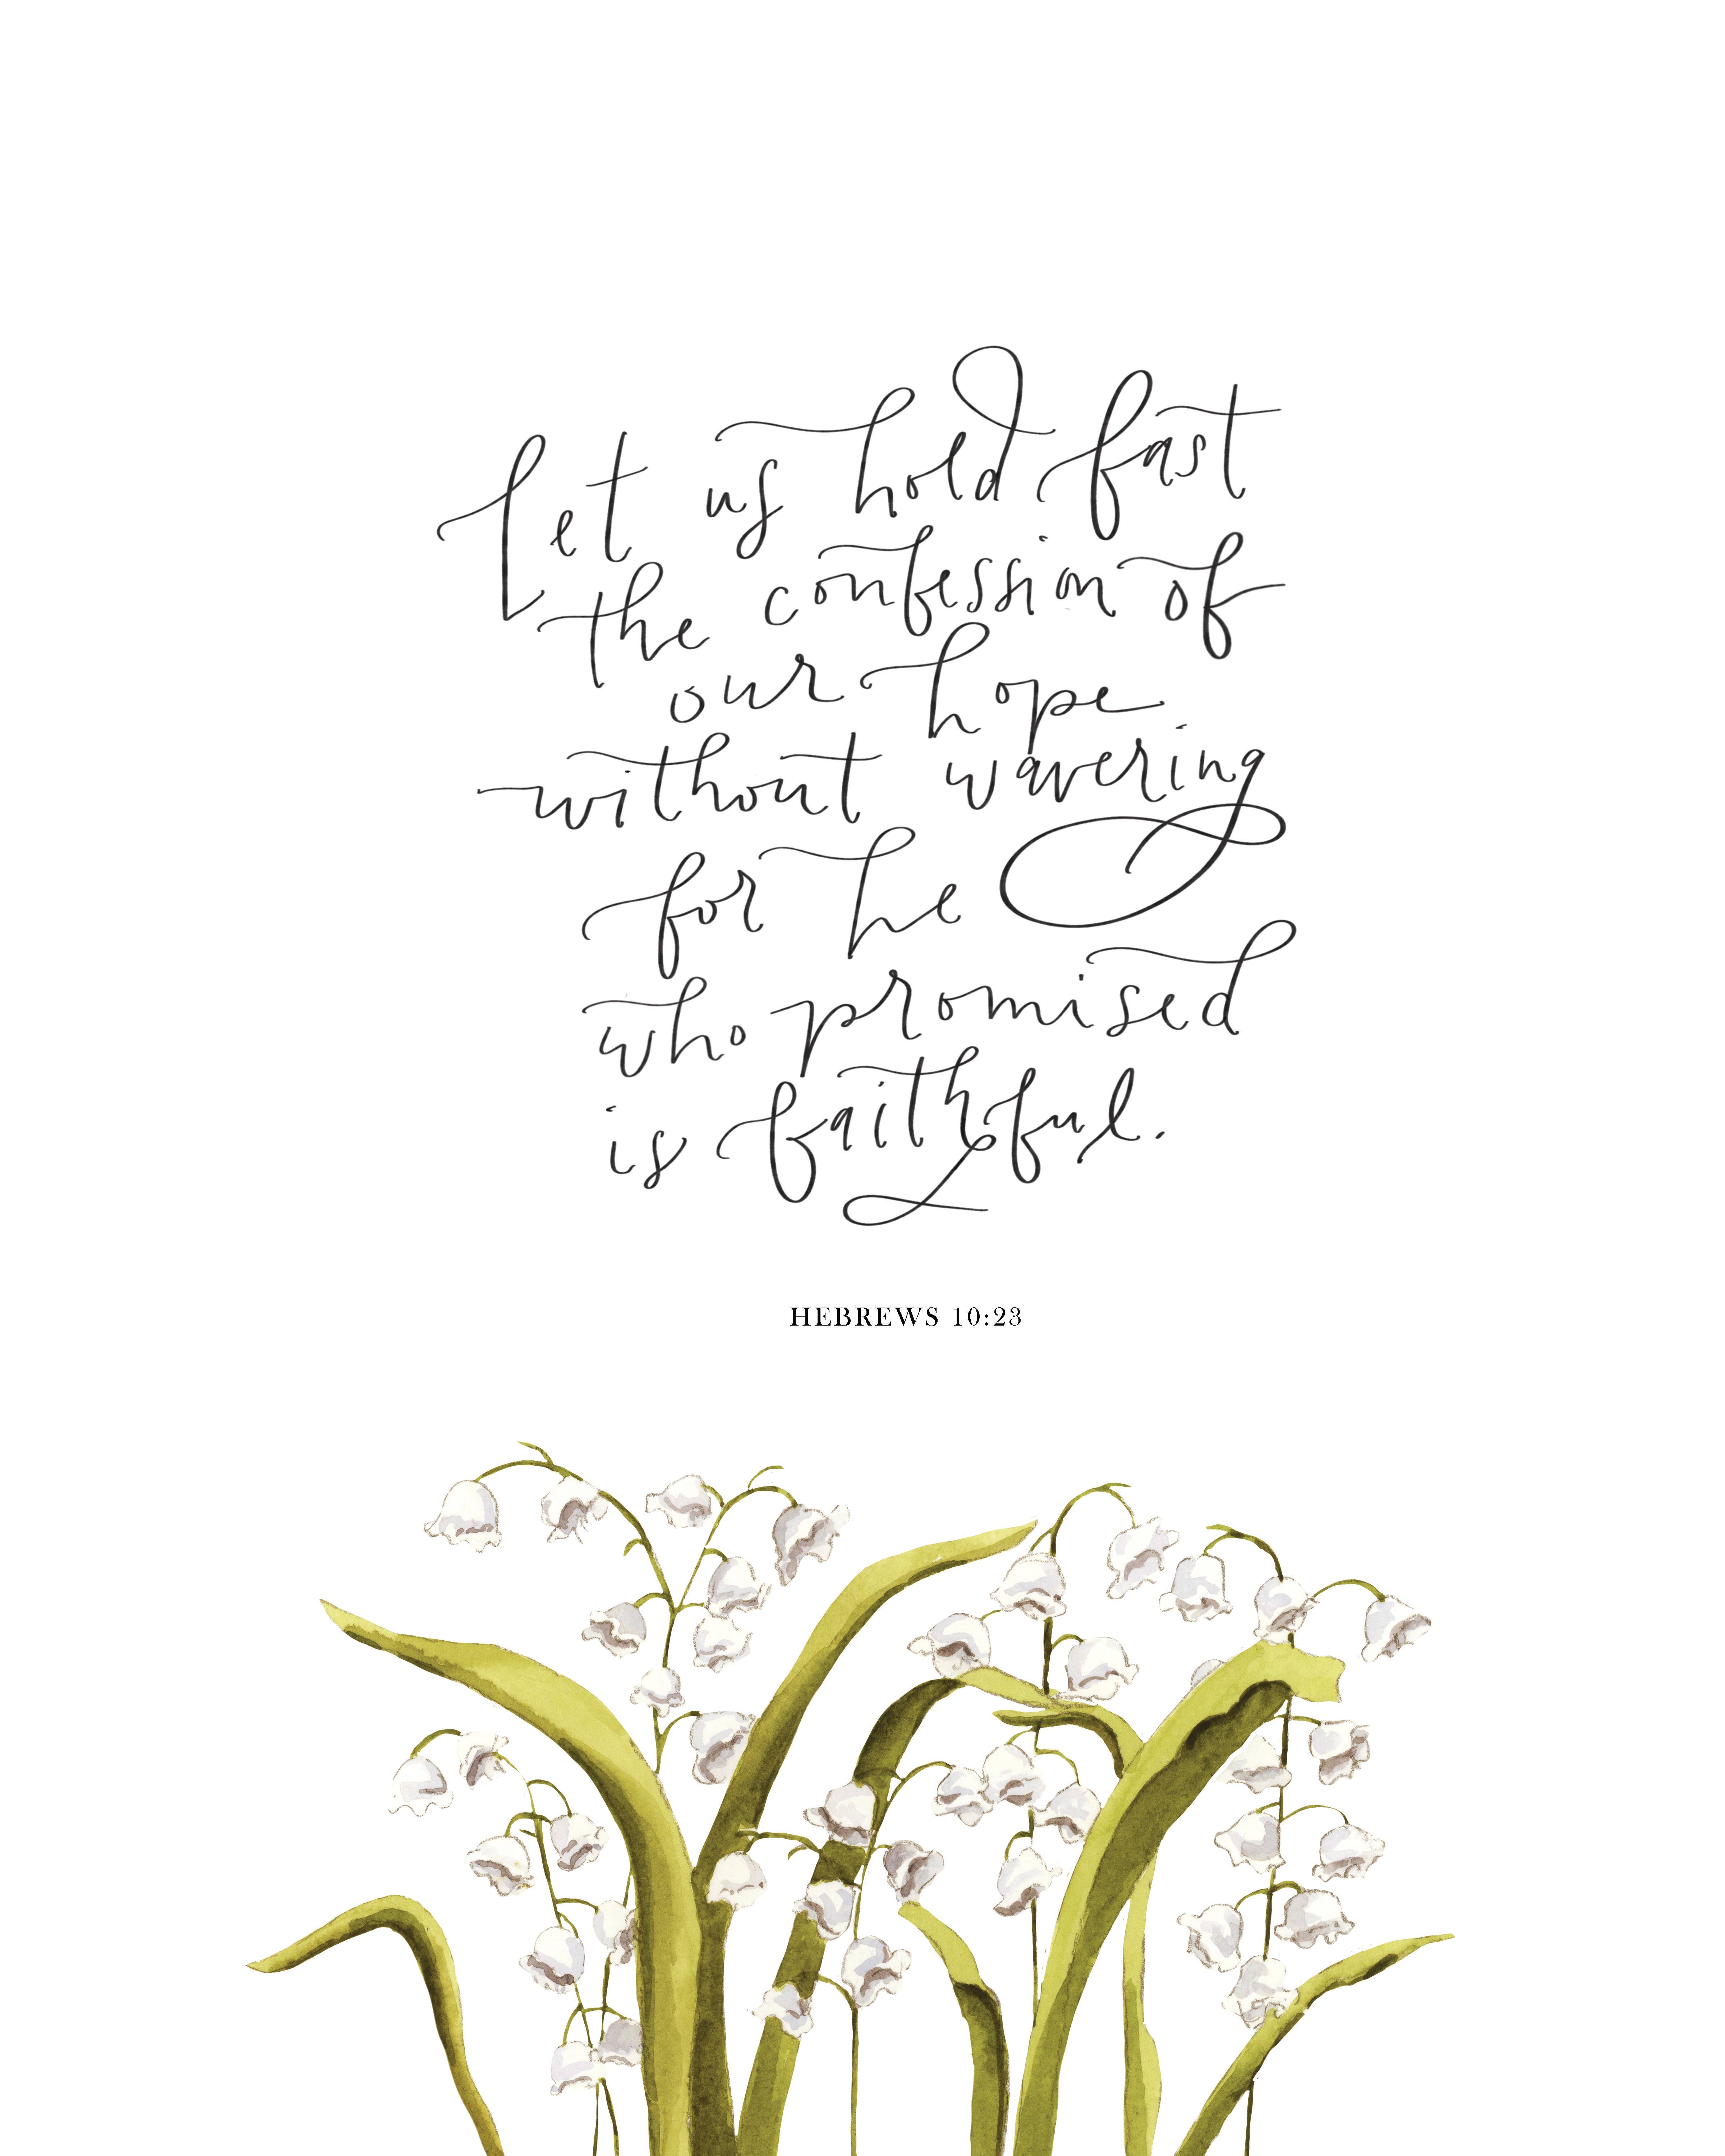 Let us hold fast
the confession of
our hope
without wavering
for he
who promised
is faithful.
HEBREWS 10:23